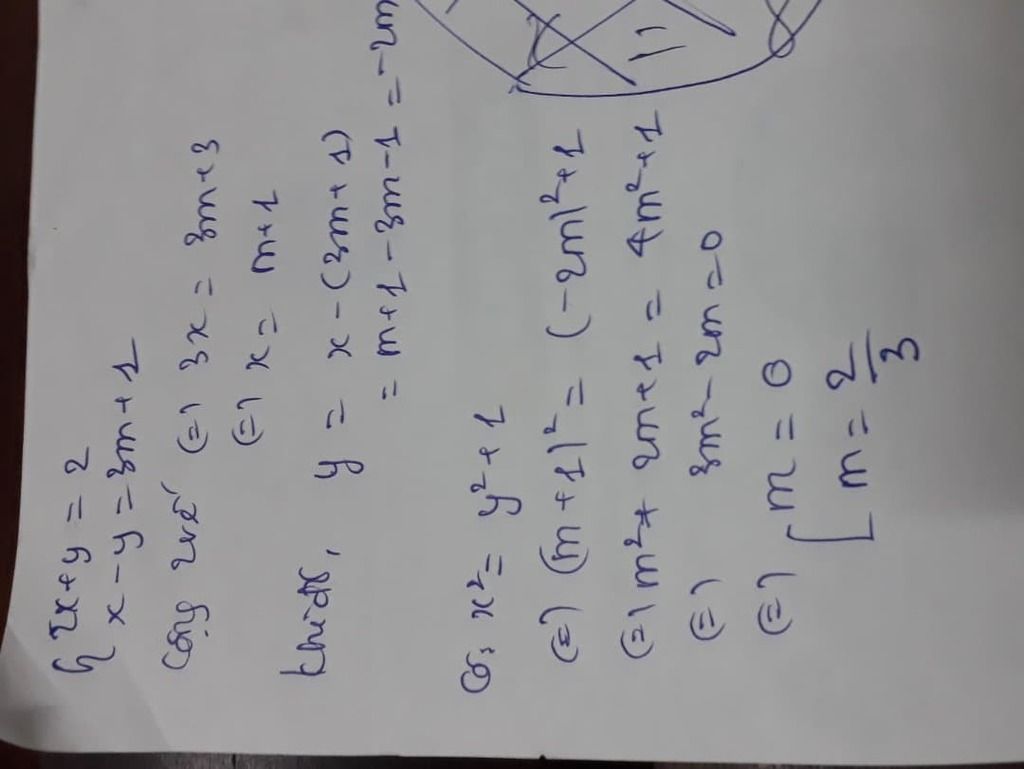 { 2x+y = 2
x-y = 3m+1
Cộng 2 vế (=) 3x = 3m+3
(=) x = m+1
khi đó, y = x-(3m+1)
= m+1-3m-1 = -2m
Có: x² = y²+1
(=) (m+1)² = (-2m)²+1
(=) m²+2m+1 = 4m²+1
(=) 3m²-2m=0
(=) [ m = 0
m = 2/3